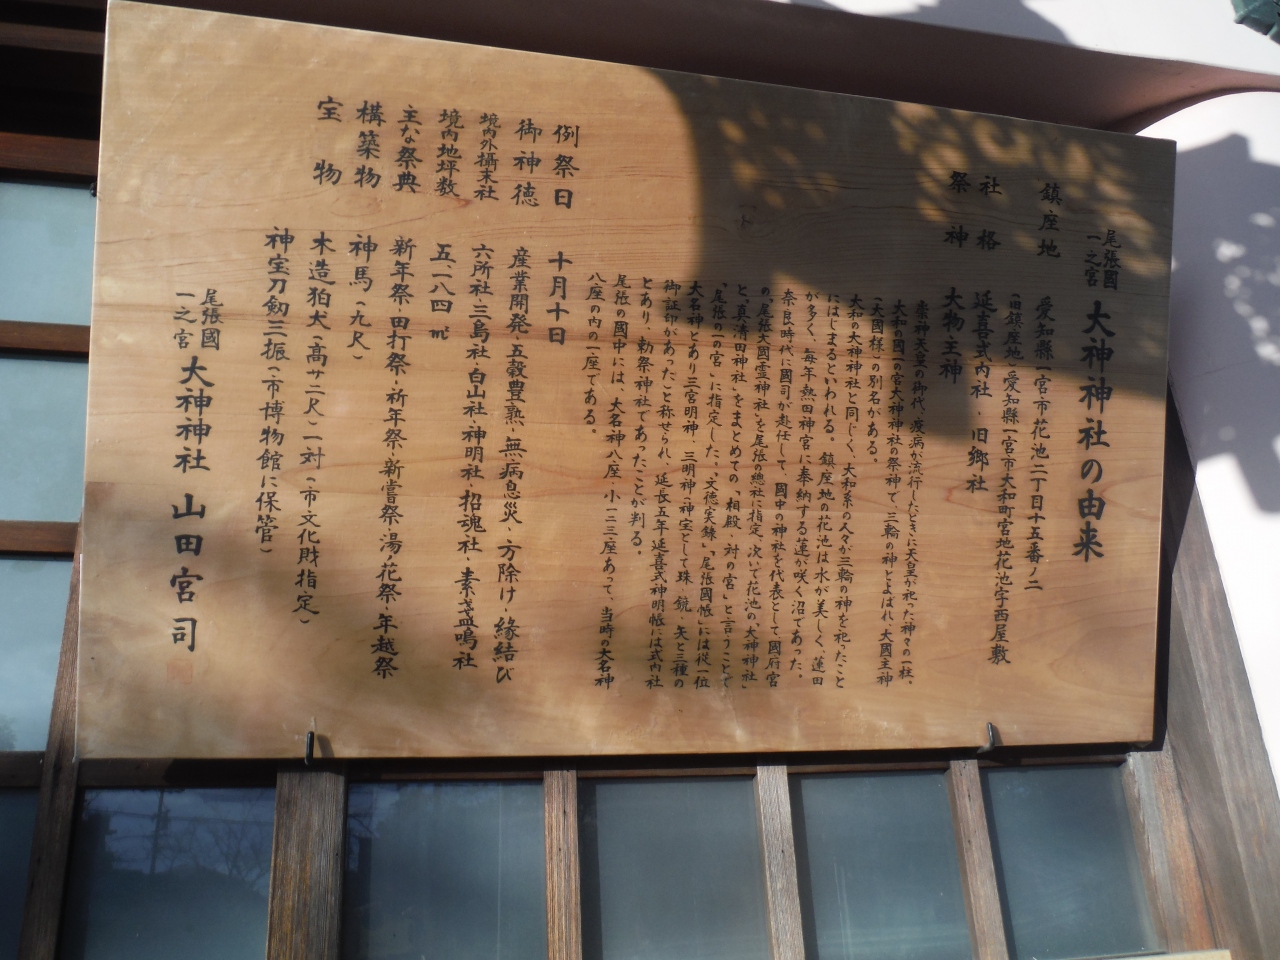 尾張國一之宮 大神神社の由来
鎮座地 愛知縣一宮市花池二丁目十五番ノ二
(旧鎮座地・愛知縣一宮市大和町宮地花池字西屋敷
社格 延喜式内社・旧郷社
祭神 大物主神
崇神天皇の御代、疫病が流行したときに天皇が祀った神々の一柱。
大和の国一の宮大神神社の祭神で三輪の神とよばれ、大國主神
(大國様)の別名がある。
大和の大神神社と同じく、大和系の人々が三輪の神を祀ったこと
にはじまるといわれる。鎮座地の花池は水が美しく、蓮田
が多く、毎年熱田神宮に奉納する蓮が咲く沼であった。
奈良時代、國司が赴任して、國中の神社を代表として國府宮
の「尾張大國霊神社」を尾張の總社に指定、次いで花池の「大神神社」
と「真清田神社」をまとめての「相殿、対の宮」と言うことで
「尾張の一の宮」に指定した。「文徳実録」「尾張國帳」には従一位
大名神とあり三宮明神、三明神(神宝として珠、鏡、矢と三種の
御証印があった)と称せられ、延長五年延喜式神明帳には式内社
とあり、勅祭神社であったことが判る。
尾張の國中には、大名神八座・小一二三座あって、当時の大名神
八座の内の一座である。
例祭日 十月十日
御神徳 産業開発・五穀豊熟・無病息災・方除け・縁結び
境内外攝末社 六所社・三島社・白山社・神明社・招魂社・素盞嗚社
境内地坪数 五、一八四㎡
主な祭典 新年祭・田打祭・祈年祭・新嘗祭・湯花祭・年越祭
構築物 神馬(九尺)
木造狛犬(高サ二尺)一対(市文化財指定)
宝物 神宝刀劔三振(市博物館に保管)
尾張國一之宮 大神神社 山田宮司